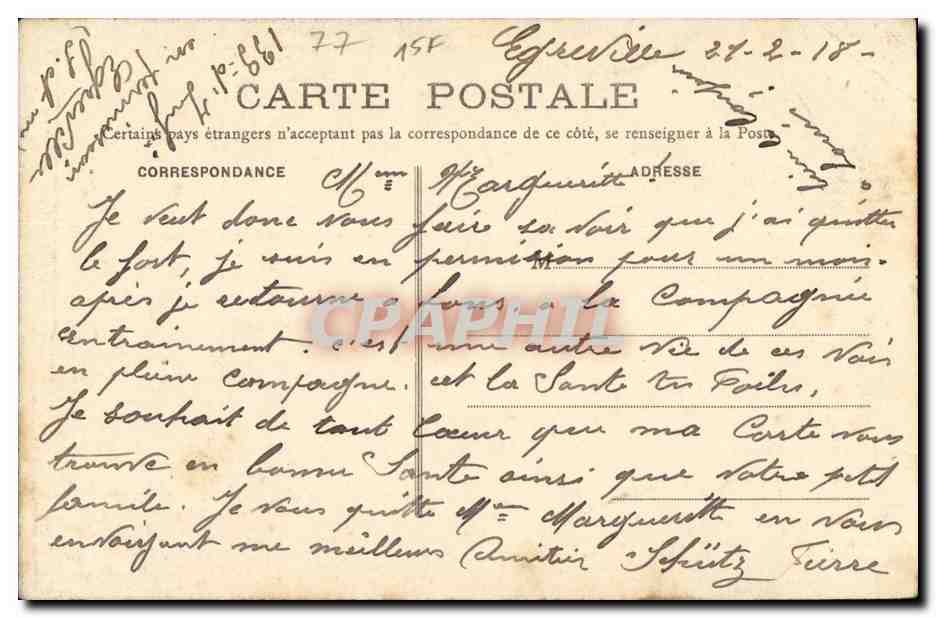 77 15F
Egreville 21-2-18-
CARTE POSTALE
Certains pays étrangers n'acceptent pas la correspondance de ce côté, se renseigner à la Poste
CORRESPONDANCE
ADRESSE
Mme Margueritte
Je veut donc vous faire savoir que j'ai quitter
le fort, je suis en permission pour un mois.
M
après je retourne a la Compagnie
entrainement. c'est une autre vie de ces vois
en pleine Compagne. et la Sante
Je souhait de tout Cœur que ma Carte vous
trouve en bonne Sante ainsi que votre petit
famile. Je vous quitte Mme Margueritt en vous
envoirjant me meilleurs Amitier Schütz Pierre
CPAPHIL